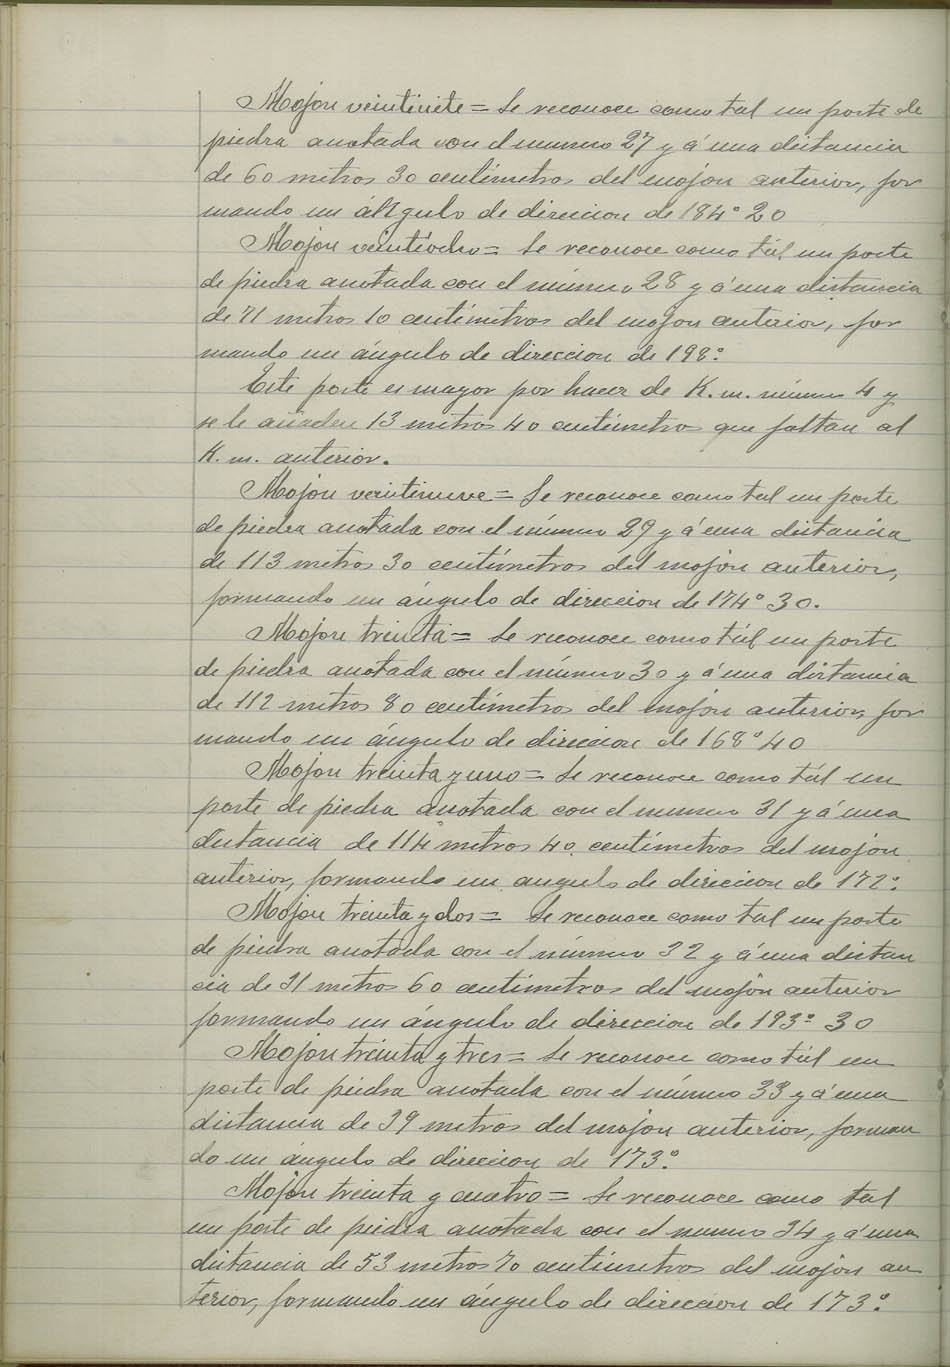 Mojon veintisiete = Se reconoce como tal un poste de
piedra anotada con el numero 27 y á una distancia
de 60 metros 30 centímetros del mojon anterior, for
mando un ángulo de direccion de 184° 20
Mojon veintiocho = Se reconoce como tál un poste
de piedra anotada con el número 28 y á una distancia
de 71 metros 10 centimetros del mojon anterior, for
mando un ángulo de direccion de 198°
Este poste es mayor por hacer de K.m. número 4 y
se le añaden 13 metros 40 centimetros que faltan al
K.m. anterior.
Mojon veintinueve = Se reconoce como tal un poste
de piedra anotada con el número 29 y á una distancia
de 113 metros 30 centímetros del mojon anterior,
formando un ángulo de direccion de 174° 30.
Mojon treinta = Se reconoce como tál un poste
de piedra anotada con el número 30 y á una distancia
de 112 metros 80 centímetros del mojon anterior, for
mando un ángulo de direccion de 168° 40
Mojon treinta y uno = Se reconoce como tál un
poste de piedra anotada con el numero 31 y á una
distancia de 114 metros 40 centímetros del mojon
anterior, formando un angulo de direccion de 172°
Mojon treinta y dos = Se reconoce como tal un poste
de piedra anotada con el número 32 y á una distan
cia de 31 metros 60 centimetros del mojón anterior
formando un ángulo de direccion de 193° 30
Mojon treinta y tres = Se reconoce como tál un
poste de piedra anotada con el número 33 y á una
distancia de 39 metros del mojon anterior, forman
do un ángulo de direccion de 173°
Mojon treinta y cuatro = Se reconoce como tal
un poste de piedra anotada con el numero 34 y á una
distancia de 53 metros 70 centimetros del mojon an
terior, formando un ángulo de direccion de 173°